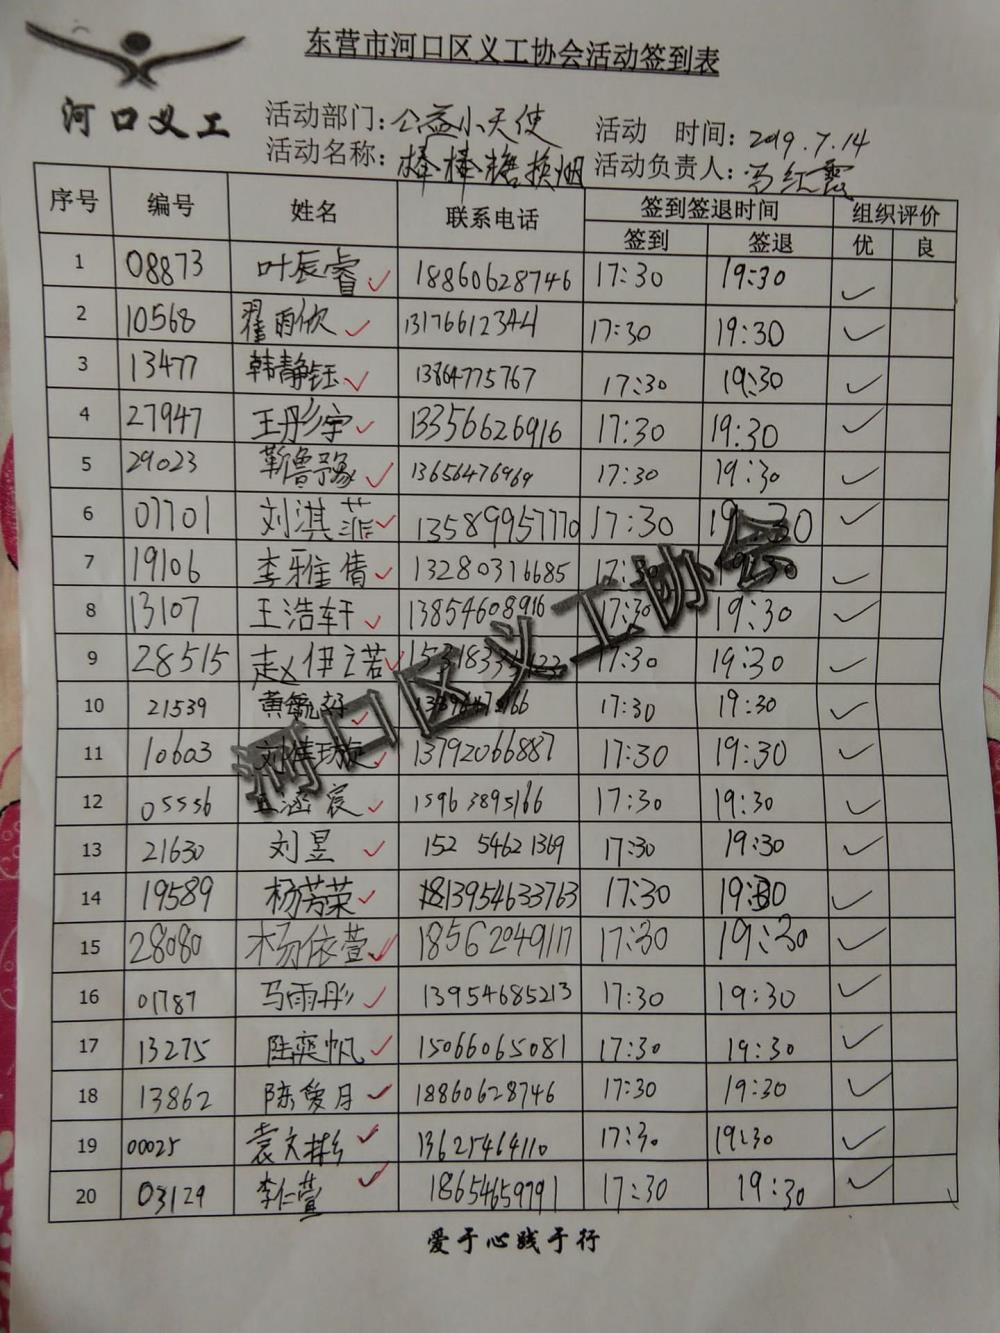 东营市河口区义工协会活动签到表
河口义工
活动部门：公益小天使 活动 时间：2019.7.14
活动名称：棒棒糖换烟 活动负责人：马红霞
序号 编号 姓名 联系电话 签到签退时间 组织评价
签到 签退 优 良
1 08873 叶辰睿 ✓ 18860628746 17:30 19:30 ✓
2 10568 翟雨欣 ✓ 13176612344 17:30 19:30 ✓
3 13477 韩静钰 ✓ 13864775767 17:30 19:30 ✓
4 27947 王彤宇 ✓ 13356626916 17:30 19:30 ✓
5 29023 靳鲁豫 ✓ 13656476969 17:30 19:30 ✓
6 07701 刘淇菲 ✓ 13589957770 17:30 19:30 ✓
7 19106 李雅倩 ✓ 13280316685 17:30 19:30 ✓
8 13107 王浩轩 ✓ 13854608916 17:30 19:30 ✓
9 28515 赵伊若 ✓ 17:30 19:30 ✓
10 21539 ✓ 17:30 19:30 ✓
11 10603 刘佳璇 ✓ 13792066887 17:30 19:30 ✓
12 05556 王涵宸 ✓ 15963895166 17:30 19:30 ✓
13 21630 刘昱 ✓ 152 5462 1369 17:30 19:30 ✓
14 19589 杨芳荣 ✓ 13954633763 17:30 19:30 ✓
15 28080 杨依萱 ✓ 18562049117 17:30 19:30 ✓
16 01787 马雨彤 ✓ 13954685213 17:30 19:30 ✓
17 13275 陆奕帆 ✓ 15066065081 17:30 19:30 ✓
18 13862 陈爱月 ✓ 18860628746 17:30 19:30 ✓
19 00025 袁文彬 ✓ 13625464110 17:30 19:30 ✓
20 03129 李仁萱 ✓ 18654659791 17:30 19:30 ✓
河口区义工协会
爱于心践于行